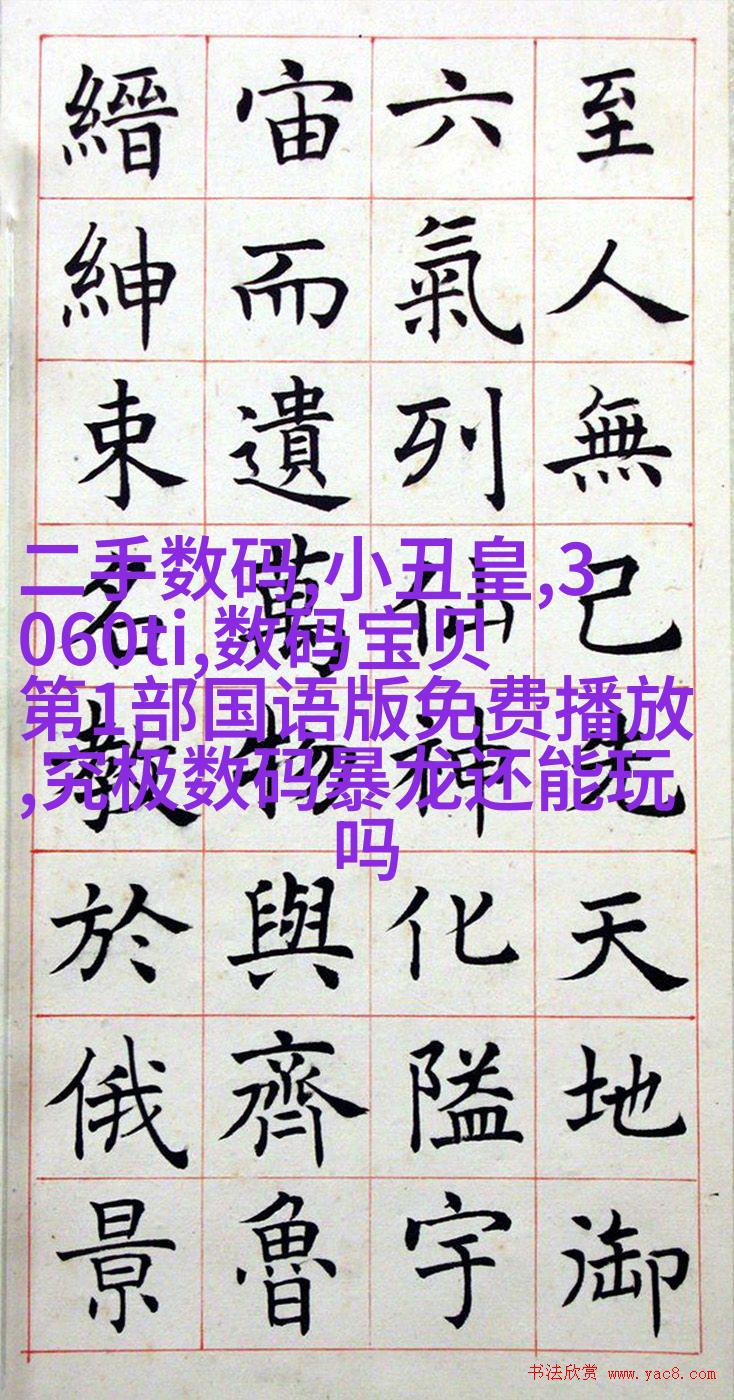 至人無己先天地御
六氣列仙神化隘宇
宙而遺萬物與齊魯
縉紳束名教於俄景
二手数码,小丑皇,3
060ti,数码宝贝
第1部国语版免费播放
,究极数码暴龙还能玩
吗
书法欣赏 www.yac8.com